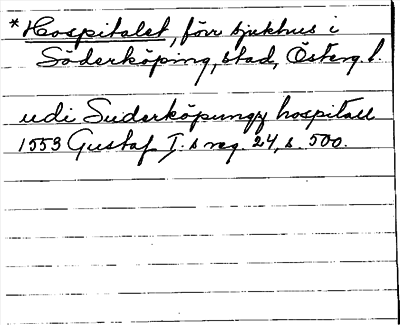 * Hospitalet, förr sjukhus i
Söderköping, stad, Österg. l.
udi Suderköpungx hospitall
1553 Gustaf I:s reg. 24, s. 500.